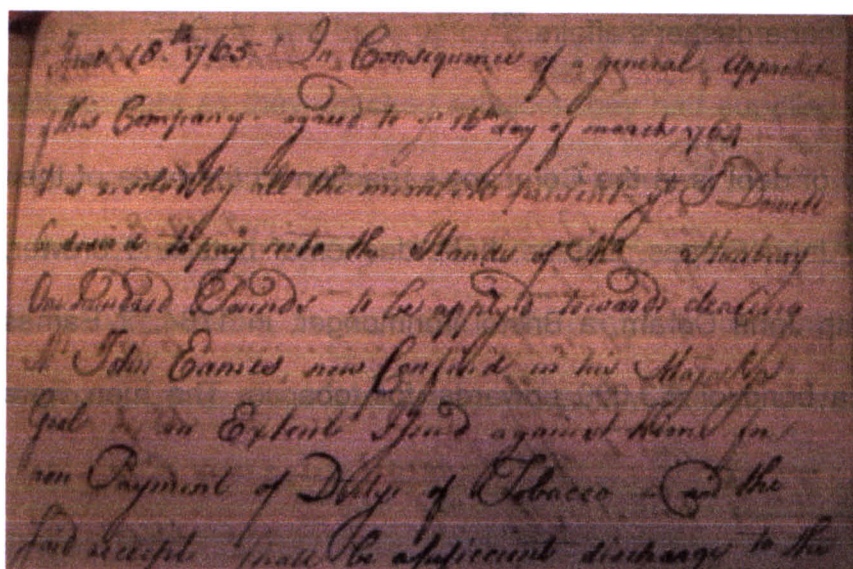 June 18.th 1765 In Consequence of a general
this Company agreed to ye 16th day of march 1764
It is resolved by all the members present yt J Dowell
be desired to pay into the Hands of Mr
One hundred Pounds to be apply'd towards clearing
Mr John Eames now Confin'd in his Majestys
Goal on an Extent Issued against him for
non Payment of Dutys of Tobacco - and the
said receipt shall be a sufficient discharge to the